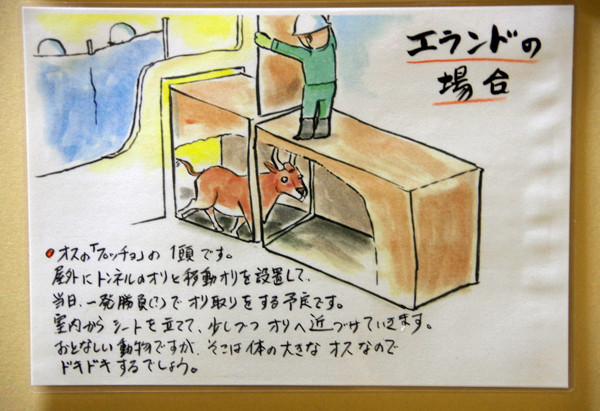 エランドの
場合
オスの「プッチョ」の 1頭です。
屋外にトンネルのオリと移動オリを設置して、
当日、一発勝負(?)でオリ取りをする予定です。
室内から シートを立てて、少しづつ オリへ近づけていきます。
おとなしい動物ですが、そこは体の大きな オスなので
ドキドキするでしょう。